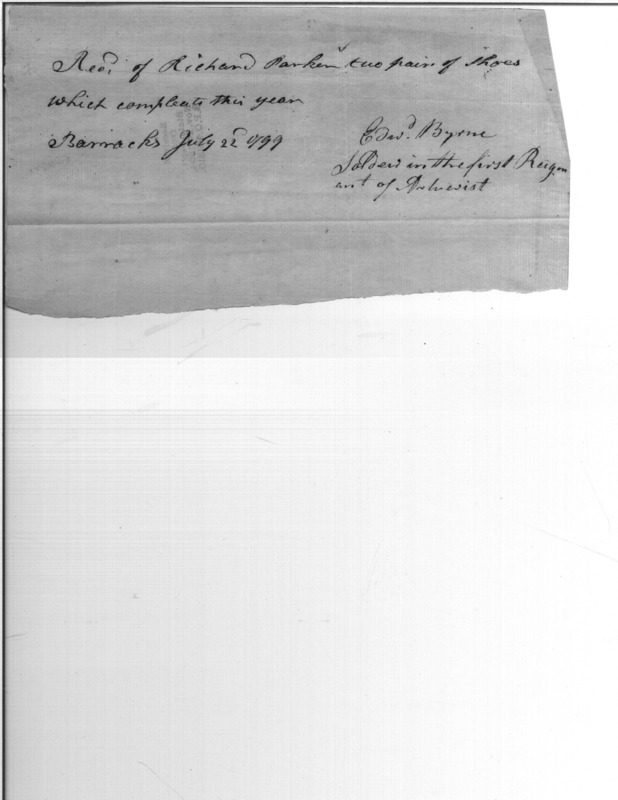 Recd. of Richard Parker two pair of Shoes
which compleats this year
Barracks July 22d 1799
Edwd. Byrne
Solders in the first Reigm
ant of